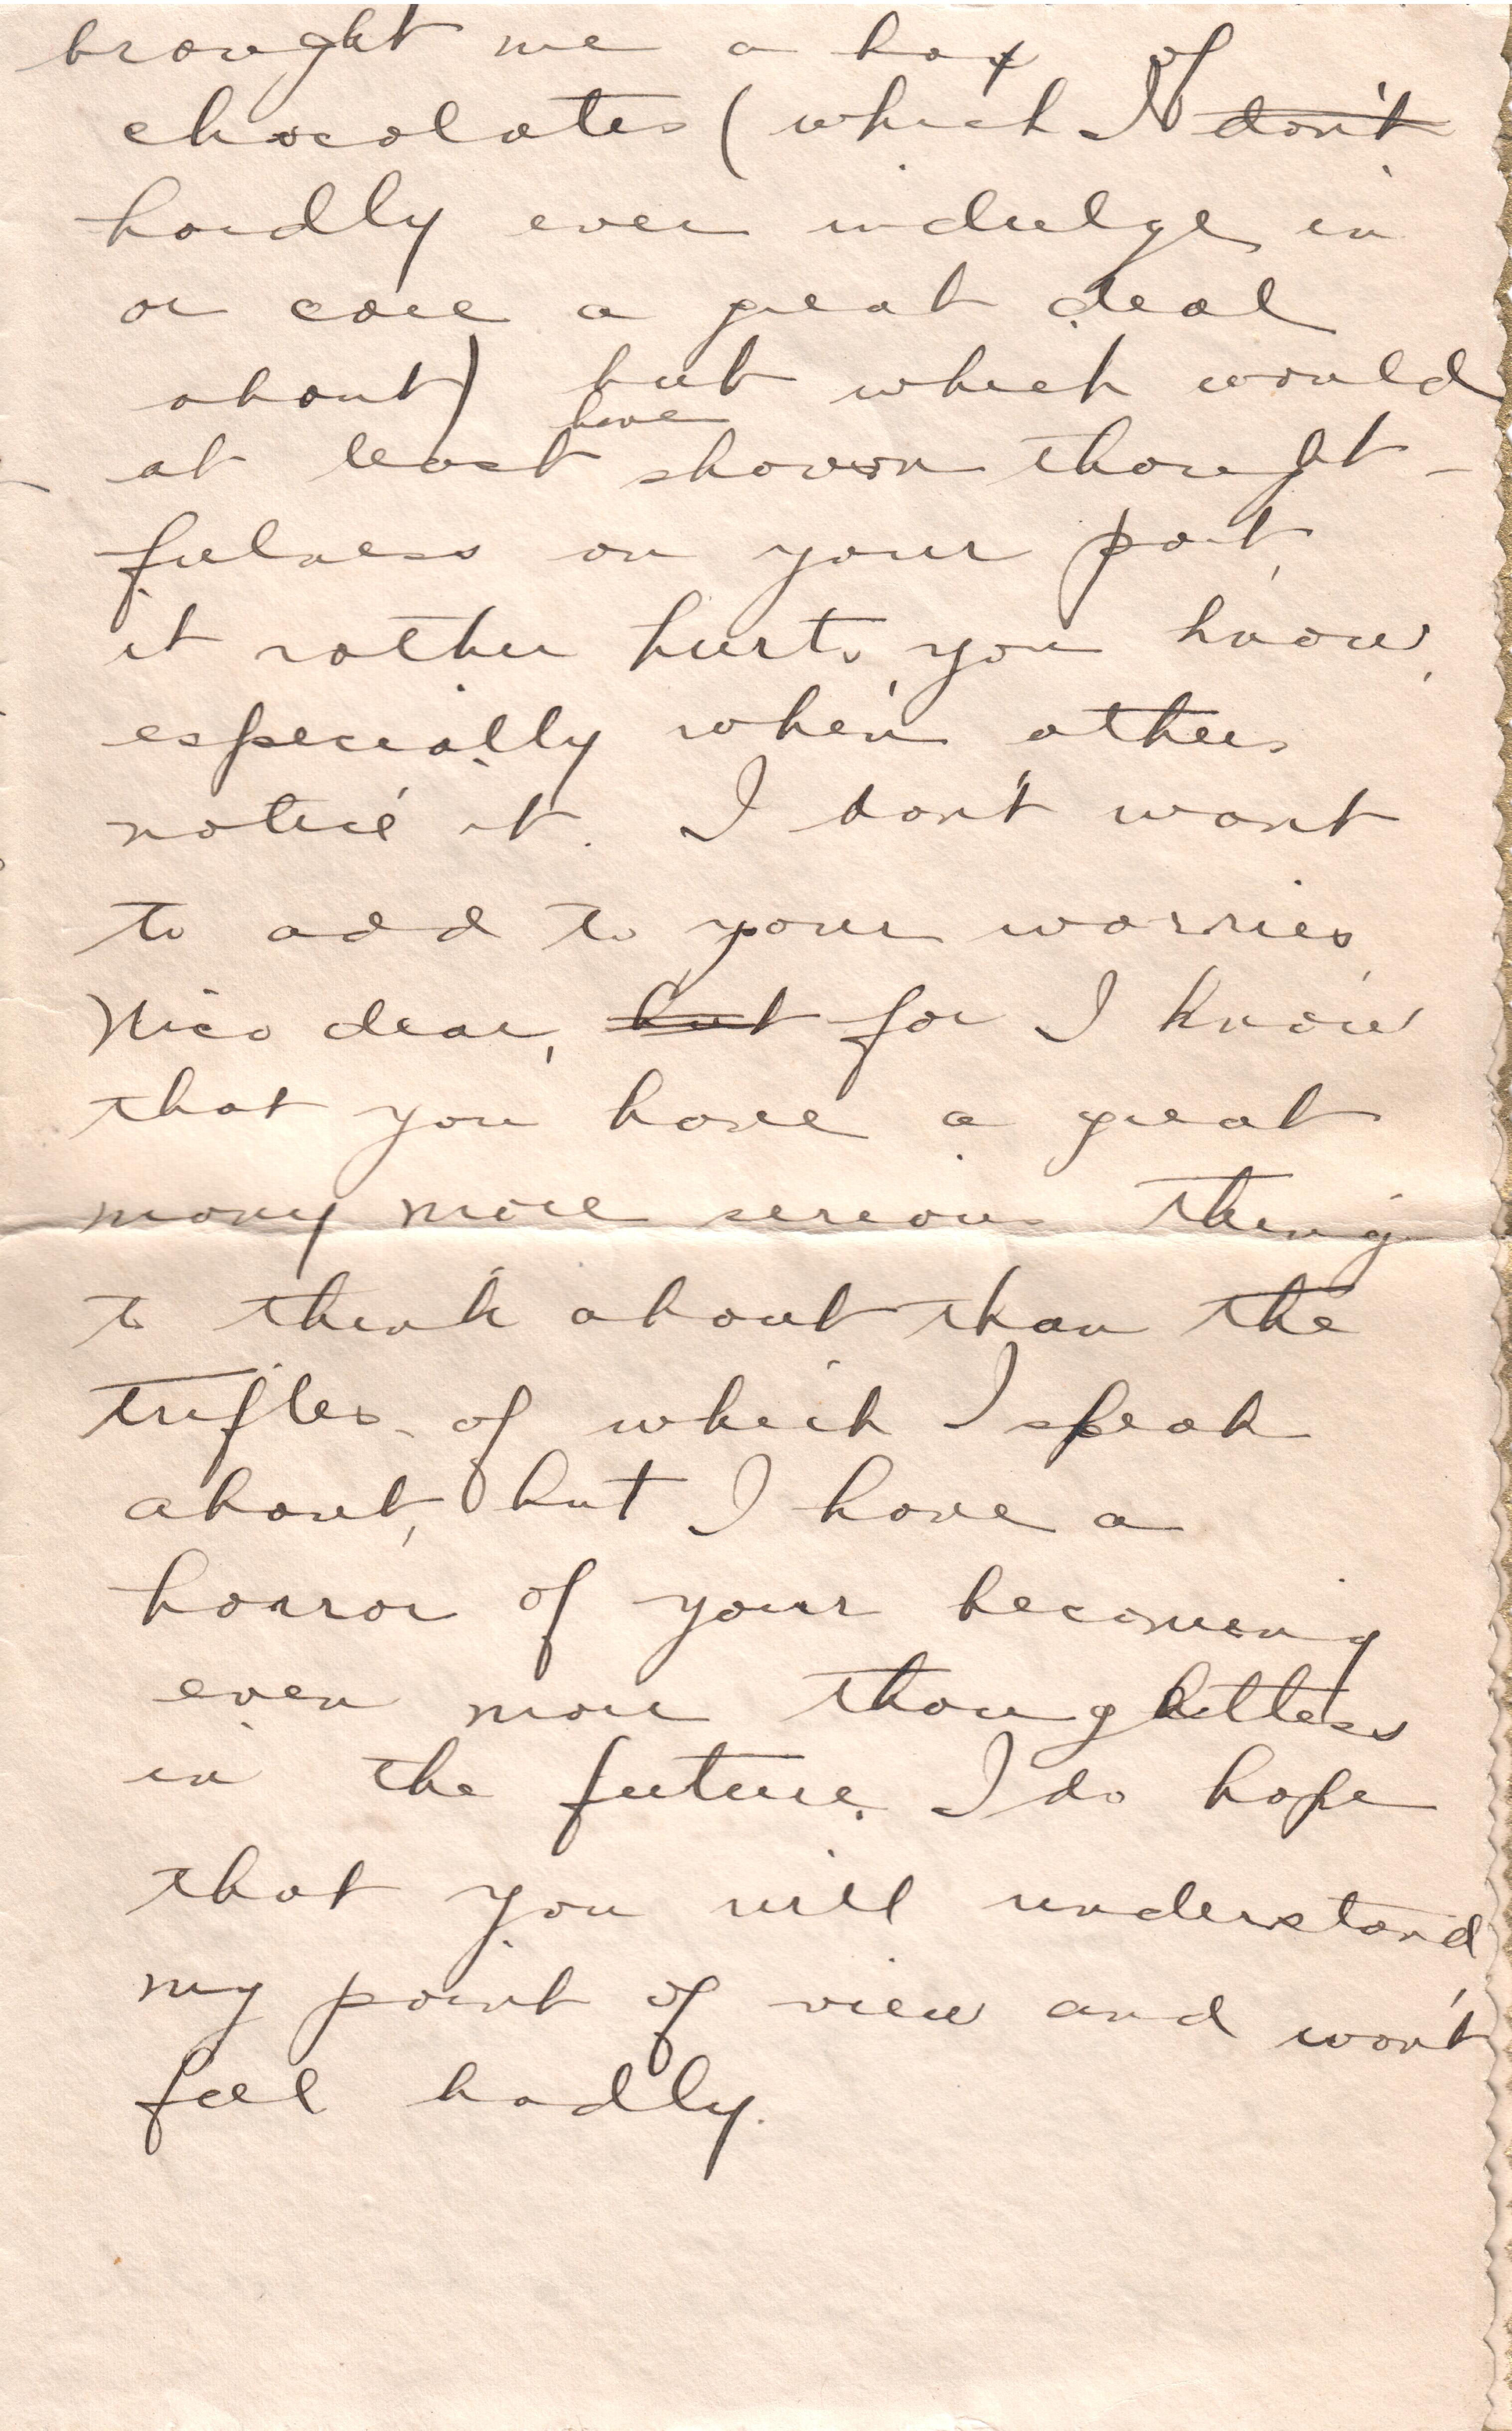 brought me a box of
chocolates (which I don't
hardly ever indulge in
or care a great deal
about) but which would
at least have shown thought-
fulness on your part,
it rather hurts, you know,
especially when others
notice it. I don't want
to add to your worries,
Nico dear, but for I know
that you have a great
many more serious things
to think about than the
trifles of which I speak
about, but I have a
horror of your becoming
even more thoughtless
in the future. I do hope
that you will understand
my point of view and won't
feel badly.